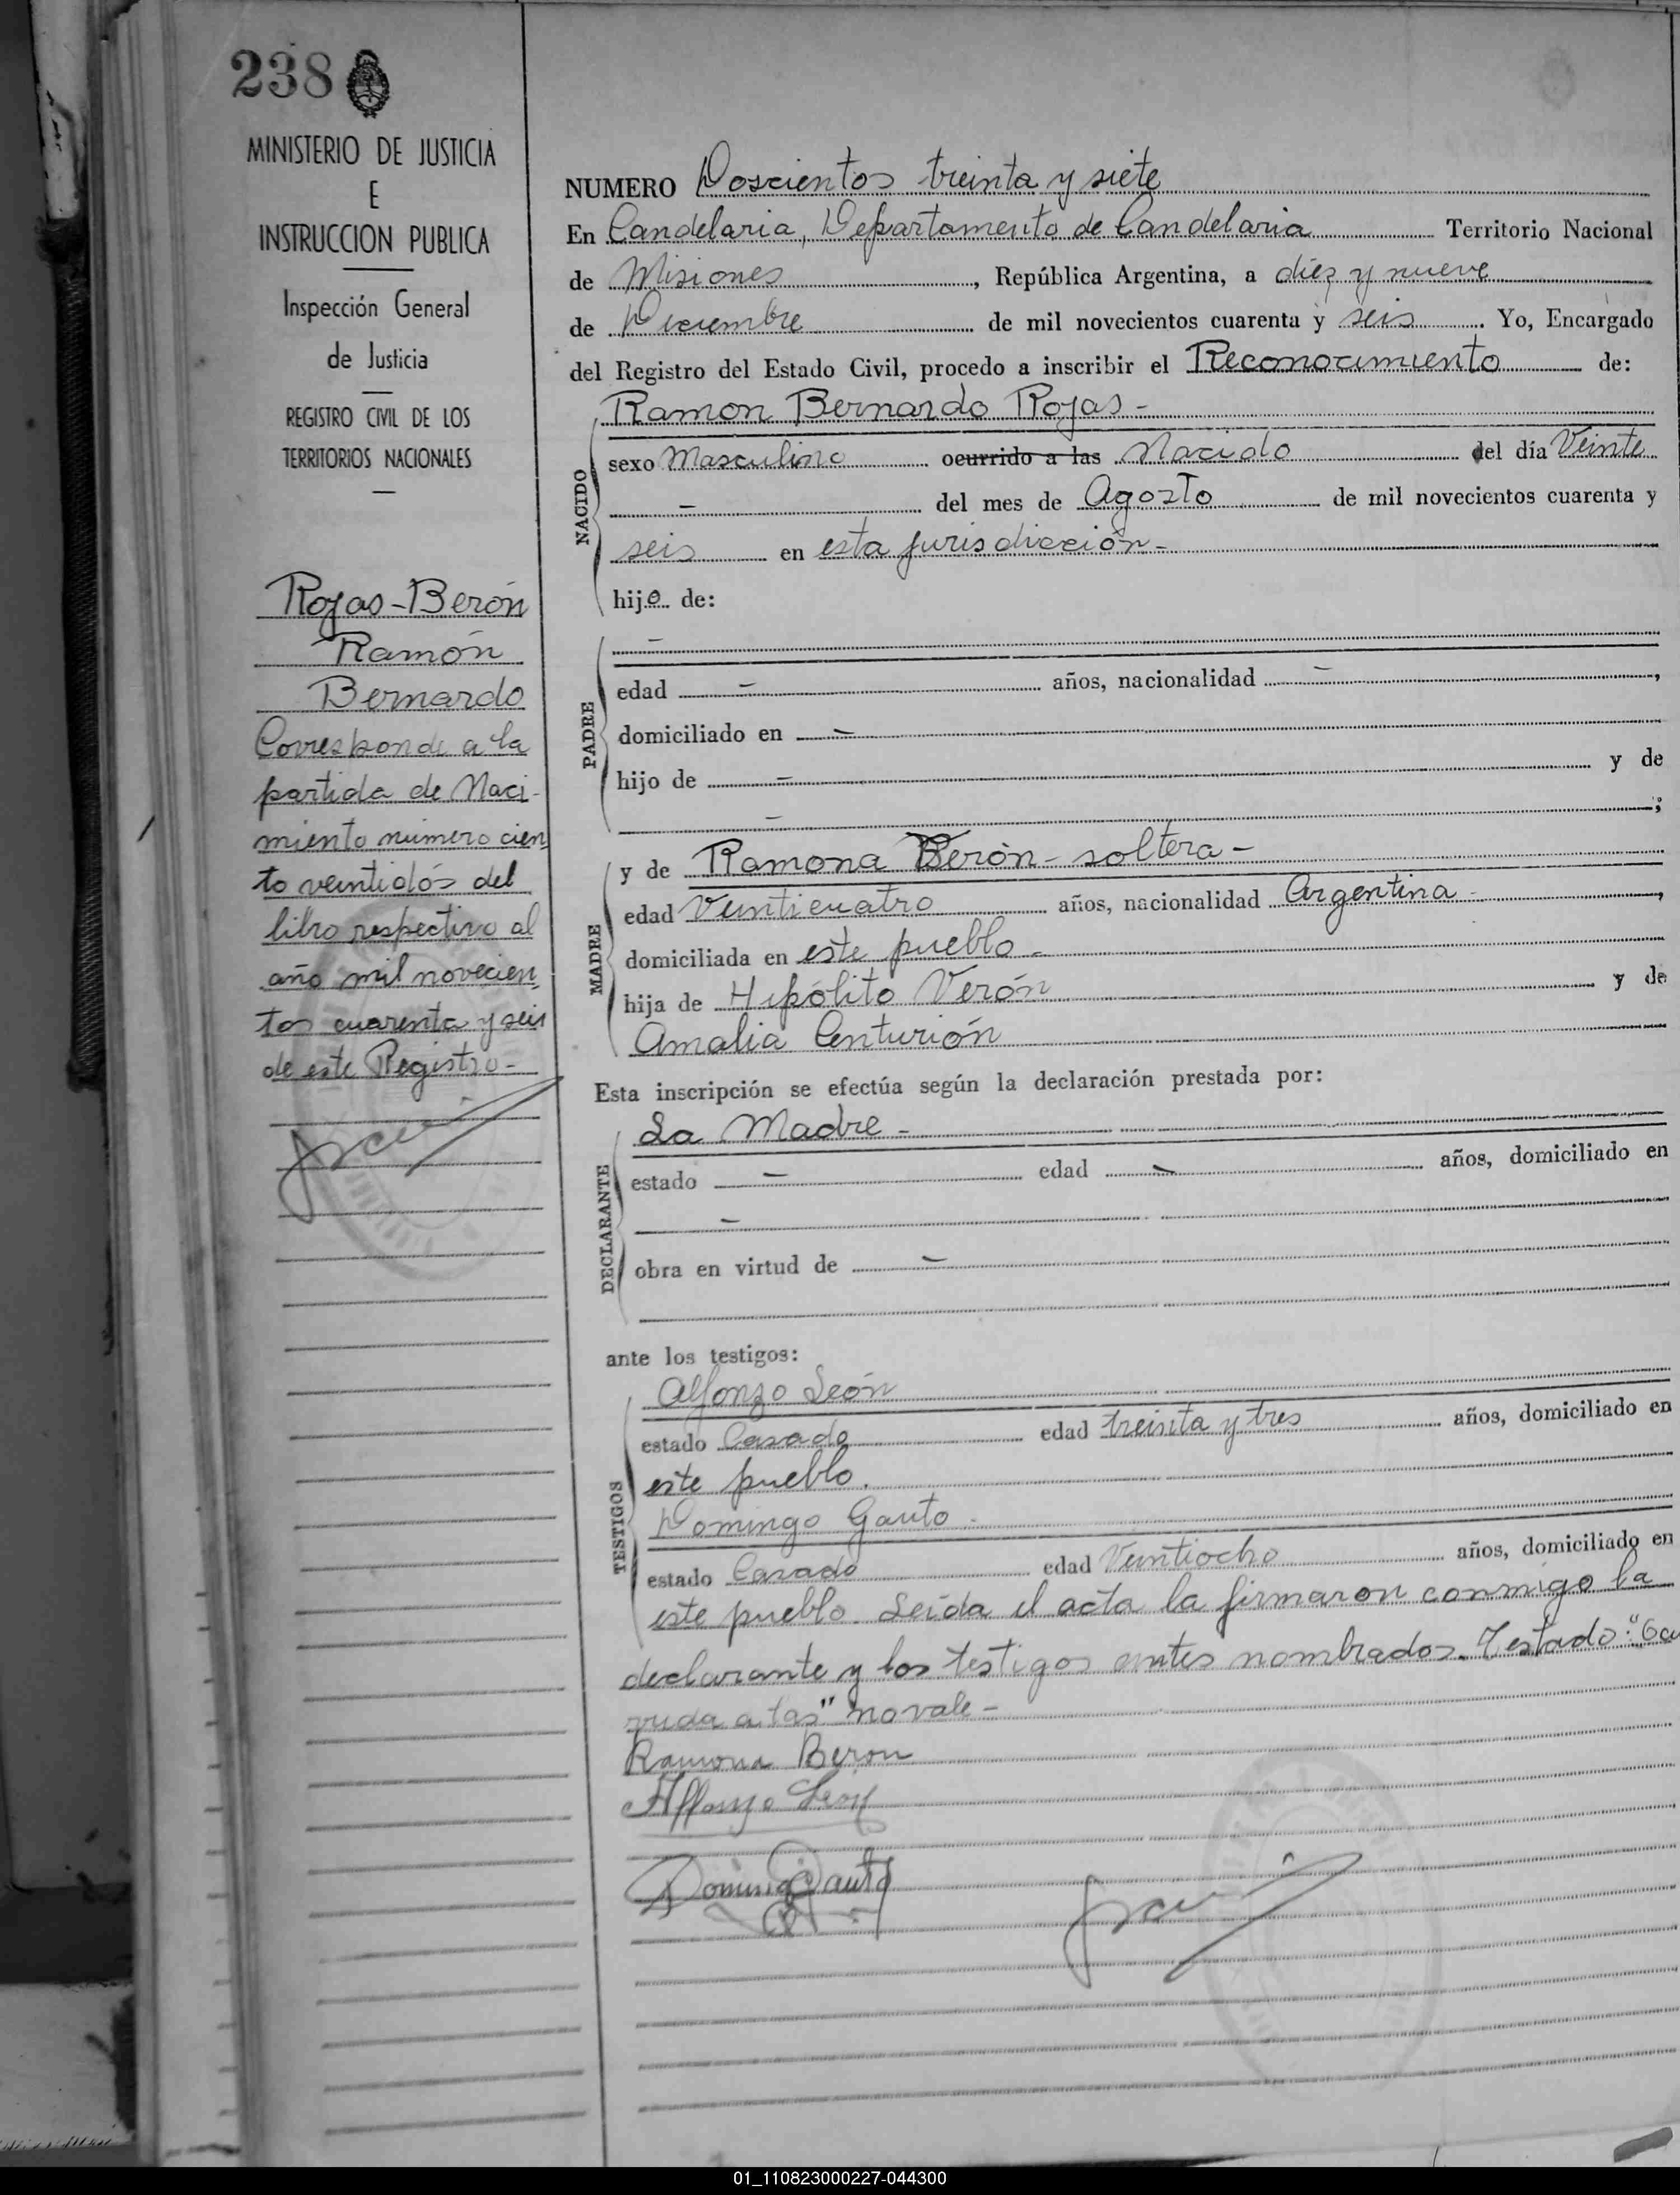 238
MINISTERIO DE JUSTICIA
E
INSTRUCCION PUBLICA
Inspección General
de Justicia
REGISTRO CIVIL DE LOS
TERRITORIOS NACIONALES
Rojas-Berón
Ramón
Bernardo
Corresponde a la
partida de Naci-
miento número cien
to veintidós del
libro respectivo al
año mil novecien
tos cuarenta y seis
de este Registro-
NUMERO Doscientos treinta y siete
En Candelaria, Departamento de Candelaria Territorio Nacional
de Misiones, República Argentina, a diez y nueve
de Diciembre de mil novecientos cuarenta y seis. Yo, Encargado
del Registro del Estado Civil, procedo a inscribir el Reconocimiento de:
Ramon Bernardo Rojas-
NACIDO
sexo Masculino ocurrido a las Nacido del día Veinte
- del mes de Agosto de mil novecientos cuarenta y
seis en esta jurisdicción-
hijo de:
PADRE
-
edad - años, nacionalidad -,
domiciliado en -
hijo de - y de
- ;
MADRE
y de Ramona Berón - soltera -
edad Veinticuatro años, nacionalidad Argentina-,
domiciliada en este pueblo-
hija de Hipólito Verón y de
Amalia Centurión
Esta inscripción se efectúa según la declaración prestada por:
DECLARANTE
La Madre-
estado - edad - años, domiciliado en
-
obra en virtud de -
ante los testigos:
TESTIGOS
Alfonzo León
estado Casado edad treinta y tres años, domiciliado en
este pueblo.
Domingo Gauto.
estado Casado edad Veintiocho años, domiciliado en
este pueblo. Leída el acta la firmaron conmigo la
declarante y los testigos antes nombrados. Testado: "Ocu
rrida a las" no vale-
Ramona Beron
Alfonzo León
Domingo Gauto
01_110823000227-044300